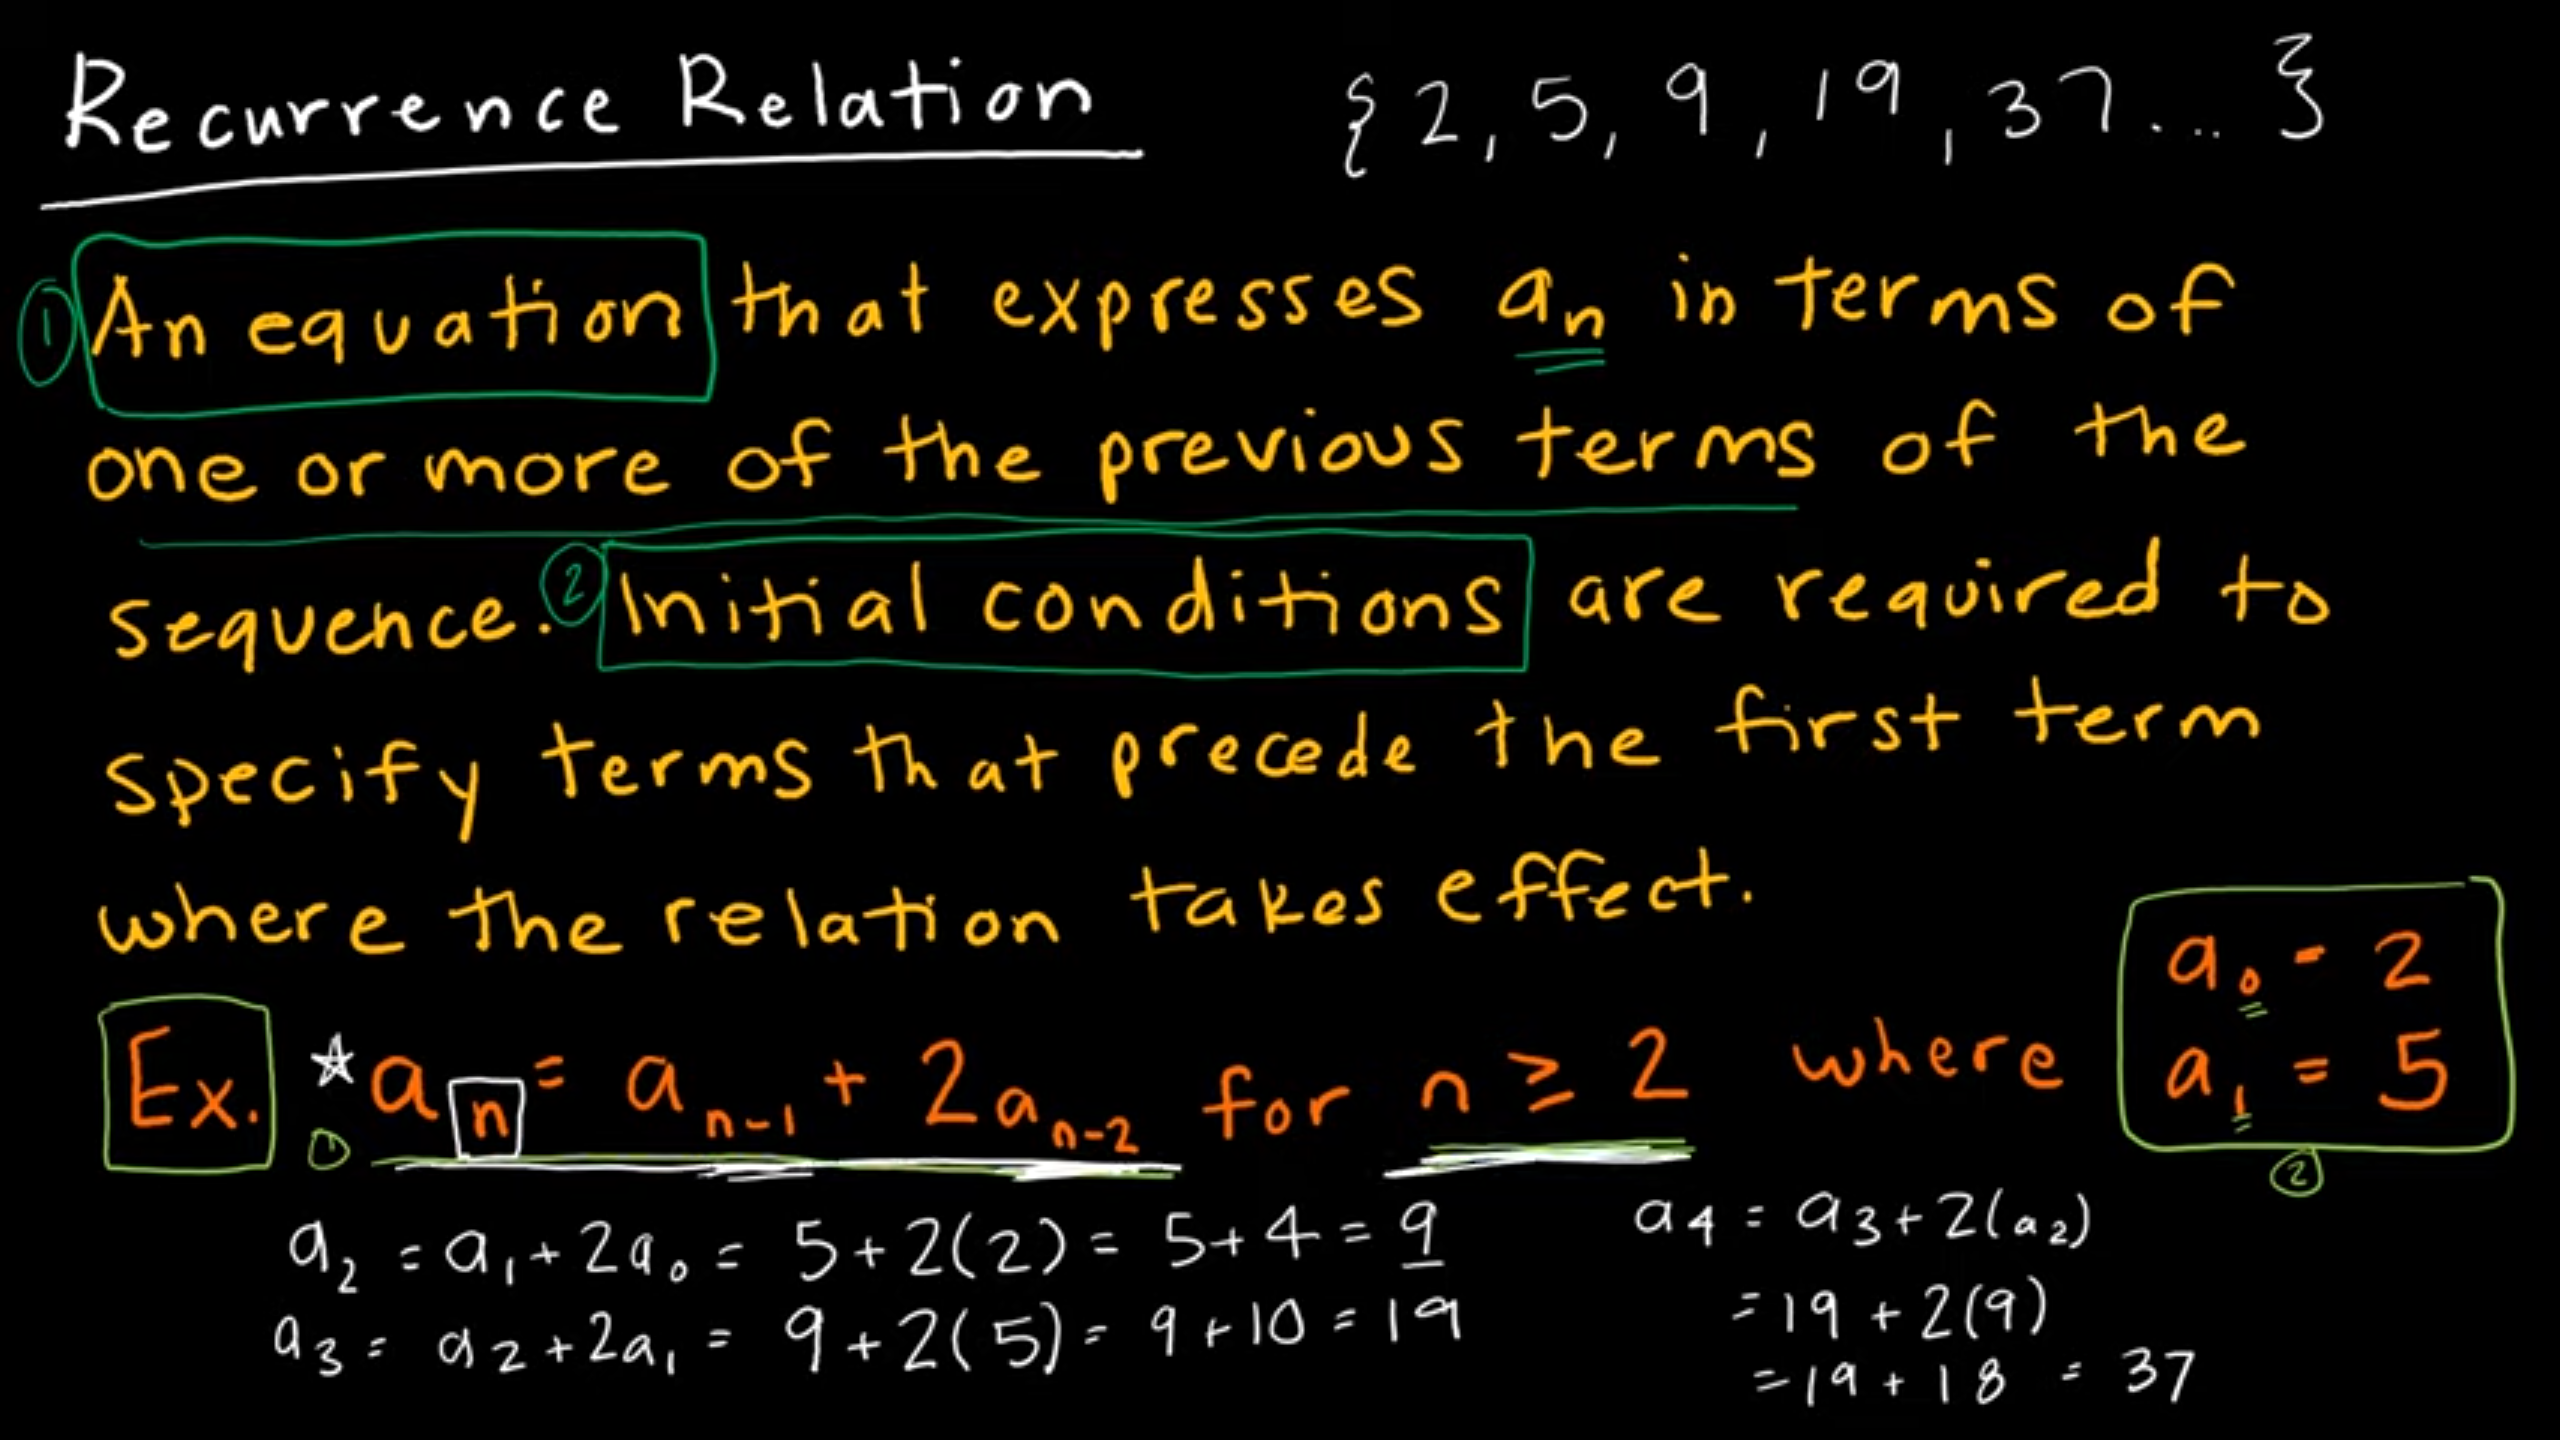 Recurrence Relation {2, 5, 9, 19, 37... }
① An equation that expresses aₙ in terms of
one or more of the previous terms of the
sequence. ② Initial conditions are required to
specify terms that precede the first term
where the relation takes effect.
a₀ = 2
Ex. ☆ aₙ = aₙ₋₁ + 2aₙ₋₂ for n ≥ 2 where a₁ = 5
① ②
a₂ = a₁ + 2a₀ = 5 + 2(2) = 5 + 4 = 9
a₃ = a₂ + 2a₁ = 9 + 2(5) = 9 + 10 = 19
a₄ = a₃ + 2(a₂)
= 19 + 2(9)
= 19 + 18 = 37